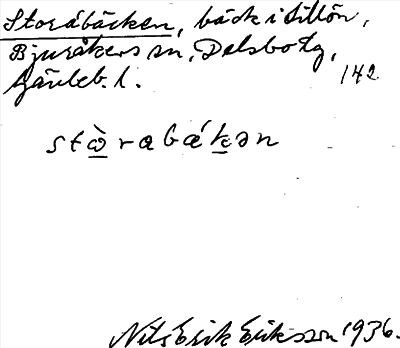 Storåbäcken, bäck i Sillön,
Bjuråkers sn, Delsbo tg,
Gävleb. l. 142
stὼrabǽkən
Nils Erik Eriksson 1936.